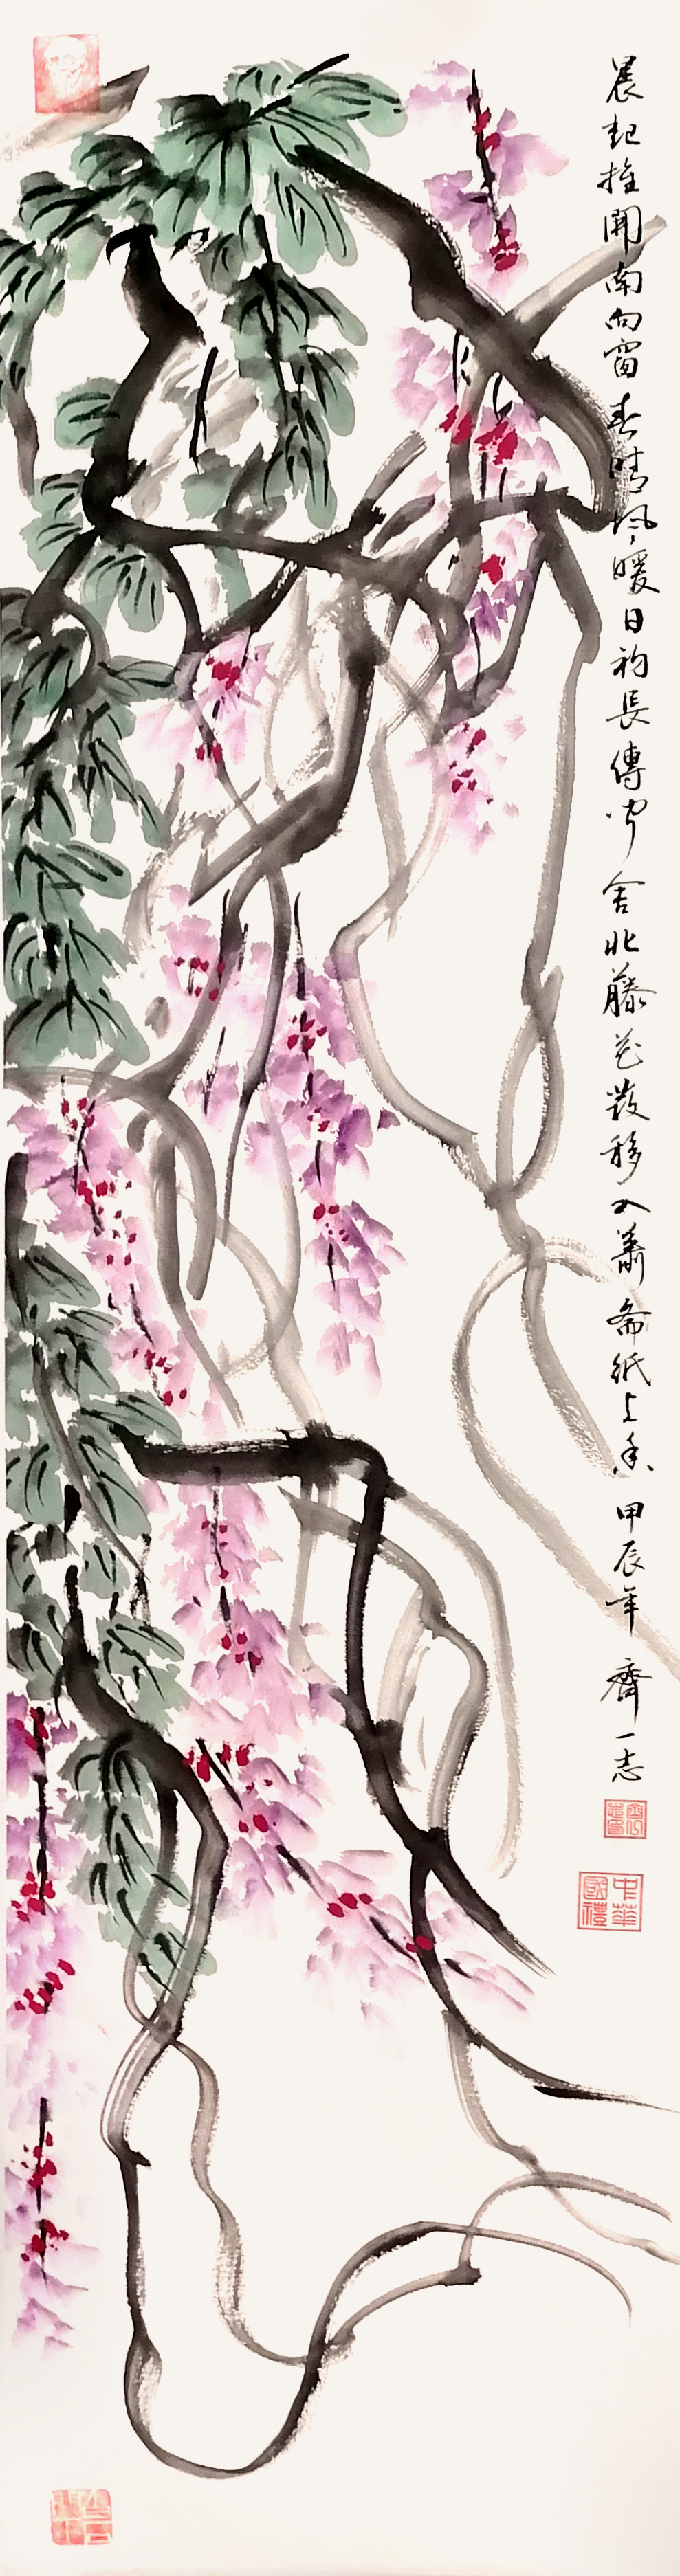 晨起推開南向窗春晴风暖日初長傳聞舍北藤花發移入蕭斋紙上香 甲辰年 齊一志
中華國禮